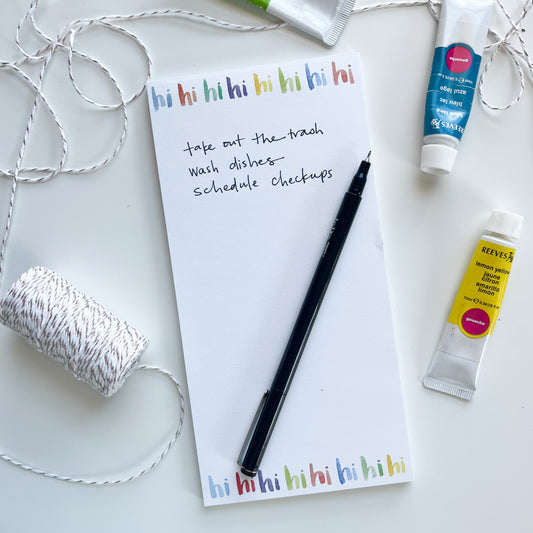 hi hi hi hi hi hi hi hi
take out the trash
wash dishes
schedule checkups
hi hi hi hi hi hi hi hi
REEVES
bleu lac
azul lago
gouache
REEVES
lemon yellow
jaune
citron
amarillo
limón
gouache